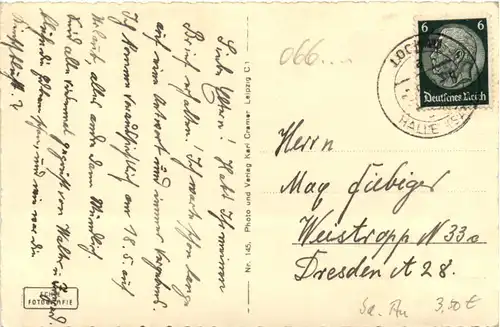 Liebe Eltern! Habt Ihr meinen
Brief erhalten. Ich warte schon lange
auf eine Antwort und immer vergebens.
Ich komme voraussichtlich am 18.5. auf
Urlaub, alles andere dann mündlich.
Seid alle vielmals gegrüßt von Walter
und wie war die
Nr. 145. Photo und Verlag Karl Cramer Leipzig C 1
ECHTE
FOTOGRAFIE
066
6 6
Deutsches Reich
LOCHAU
HALLE (SAALE)
Herrn
Max Fiebiger
Weistropp N 33a
Dresden A 28.
Sa. An 3,50 €